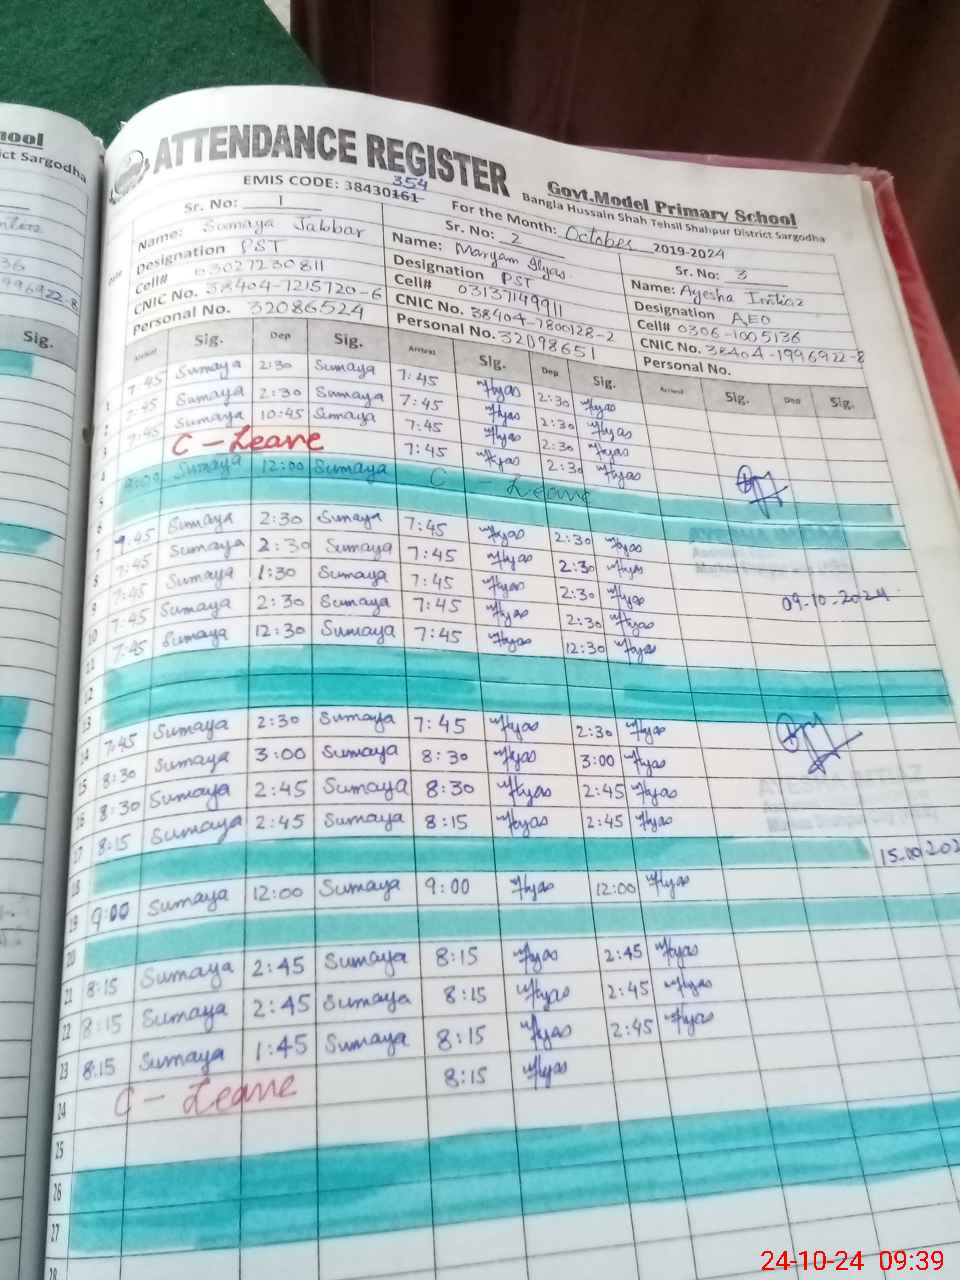 ool
ict Sargodha
36
996922-8
Sig.
ATTENDANCE REGISTER
Govt.Model Primary School
EMIS CODE: 38430161 354
Bangla Hussain Shah Tehsil Shahpur District Sargodha
For the Month: October 2019-2024
Sr. No: 1
Sr. No: 2
Sr. No: 3
Name: Sumaya Jabbar
Name: Maryam Ilyas.
Name: Ayesha Imtiaz
Designation PST
Designation PST
Designation AEO
Cell# 03027230811
Cell# 03137149911
Cell# 0306-1005136
CNIC No. 38404-7215720-6
CNIC No. 38404-7800128-2
CNIC No. 38404-1996922-8
Personal No. 32086524
Personal No. 32098651
Personal No.
Arrival Sig. Dep Sig. Arrival Sig. Dep Sig. Arrival Sig. Dep Sig.
1 7:45 Sumaya 2:30 Sumaya 7:45 Ilyas 2:30 Ilyas
2 7:45 Sumaya 2:30 Sumaya 7:45 Ilyas 2:30 Ilyas
3 7:45 Sumaya 10:45 Sumaya 7:45 Ilyas 2:30 Ilyas
4 C - Leave 7:45 Ilyas 2:30 Ilyas
5 Sumaya 12:00 Sumaya C - Leave
6
7 7:45 Sumaya 2:30 Sumaya 7:45 Ilyas 2:30 Ilyas
8 7:45 Sumaya 2:30 Sumaya 7:45 Ilyas 2:30 Ilyas
9 7:45 Sumaya 1:30 Sumaya 7:45 Ilyas 2:30 Ilyas
09-10-2024
10 7:45 Sumaya 2:30 Sumaya 7:45 Ilyas 2:30 Ilyas
11 7:45 Sumaya 12:30 Sumaya 7:45 Ilyas 12:30 Ilyas
12
13
14 7:45 Sumaya 2:30 Sumaya 7:45 Ilyas 2:30 Ilyas
15 8:30 Sumaya 3:00 Sumaya 8:30 Ilyas 3:00 Ilyas
AYESHA IMTIAZ
16 8:30 Sumaya 2:45 Sumaya 8:30 Ilyas 2:45 Ilyas
17 8:15 Sumaya 2:45 Sumaya 8:15 Ilyas 2:45 Ilyas
15.10.202
18
19 9:00 Sumaya 12:00 Sumaya 9:00 Ilyas 12:00 Ilyas
20
21 8:15 Sumaya 2:45 Sumaya 8:15 Ilyas 2:45 Ilyas
22 8:15 Sumaya 2:45 Sumaya 8:15 Ilyas 2:45 Ilyas
23 8:15 Sumaya 1:45 Sumaya 8:15 Ilyas 2:45 Ilyas
24 C - Leave 8:15 Ilyas
25
26
27
28
24-10-24 09:39